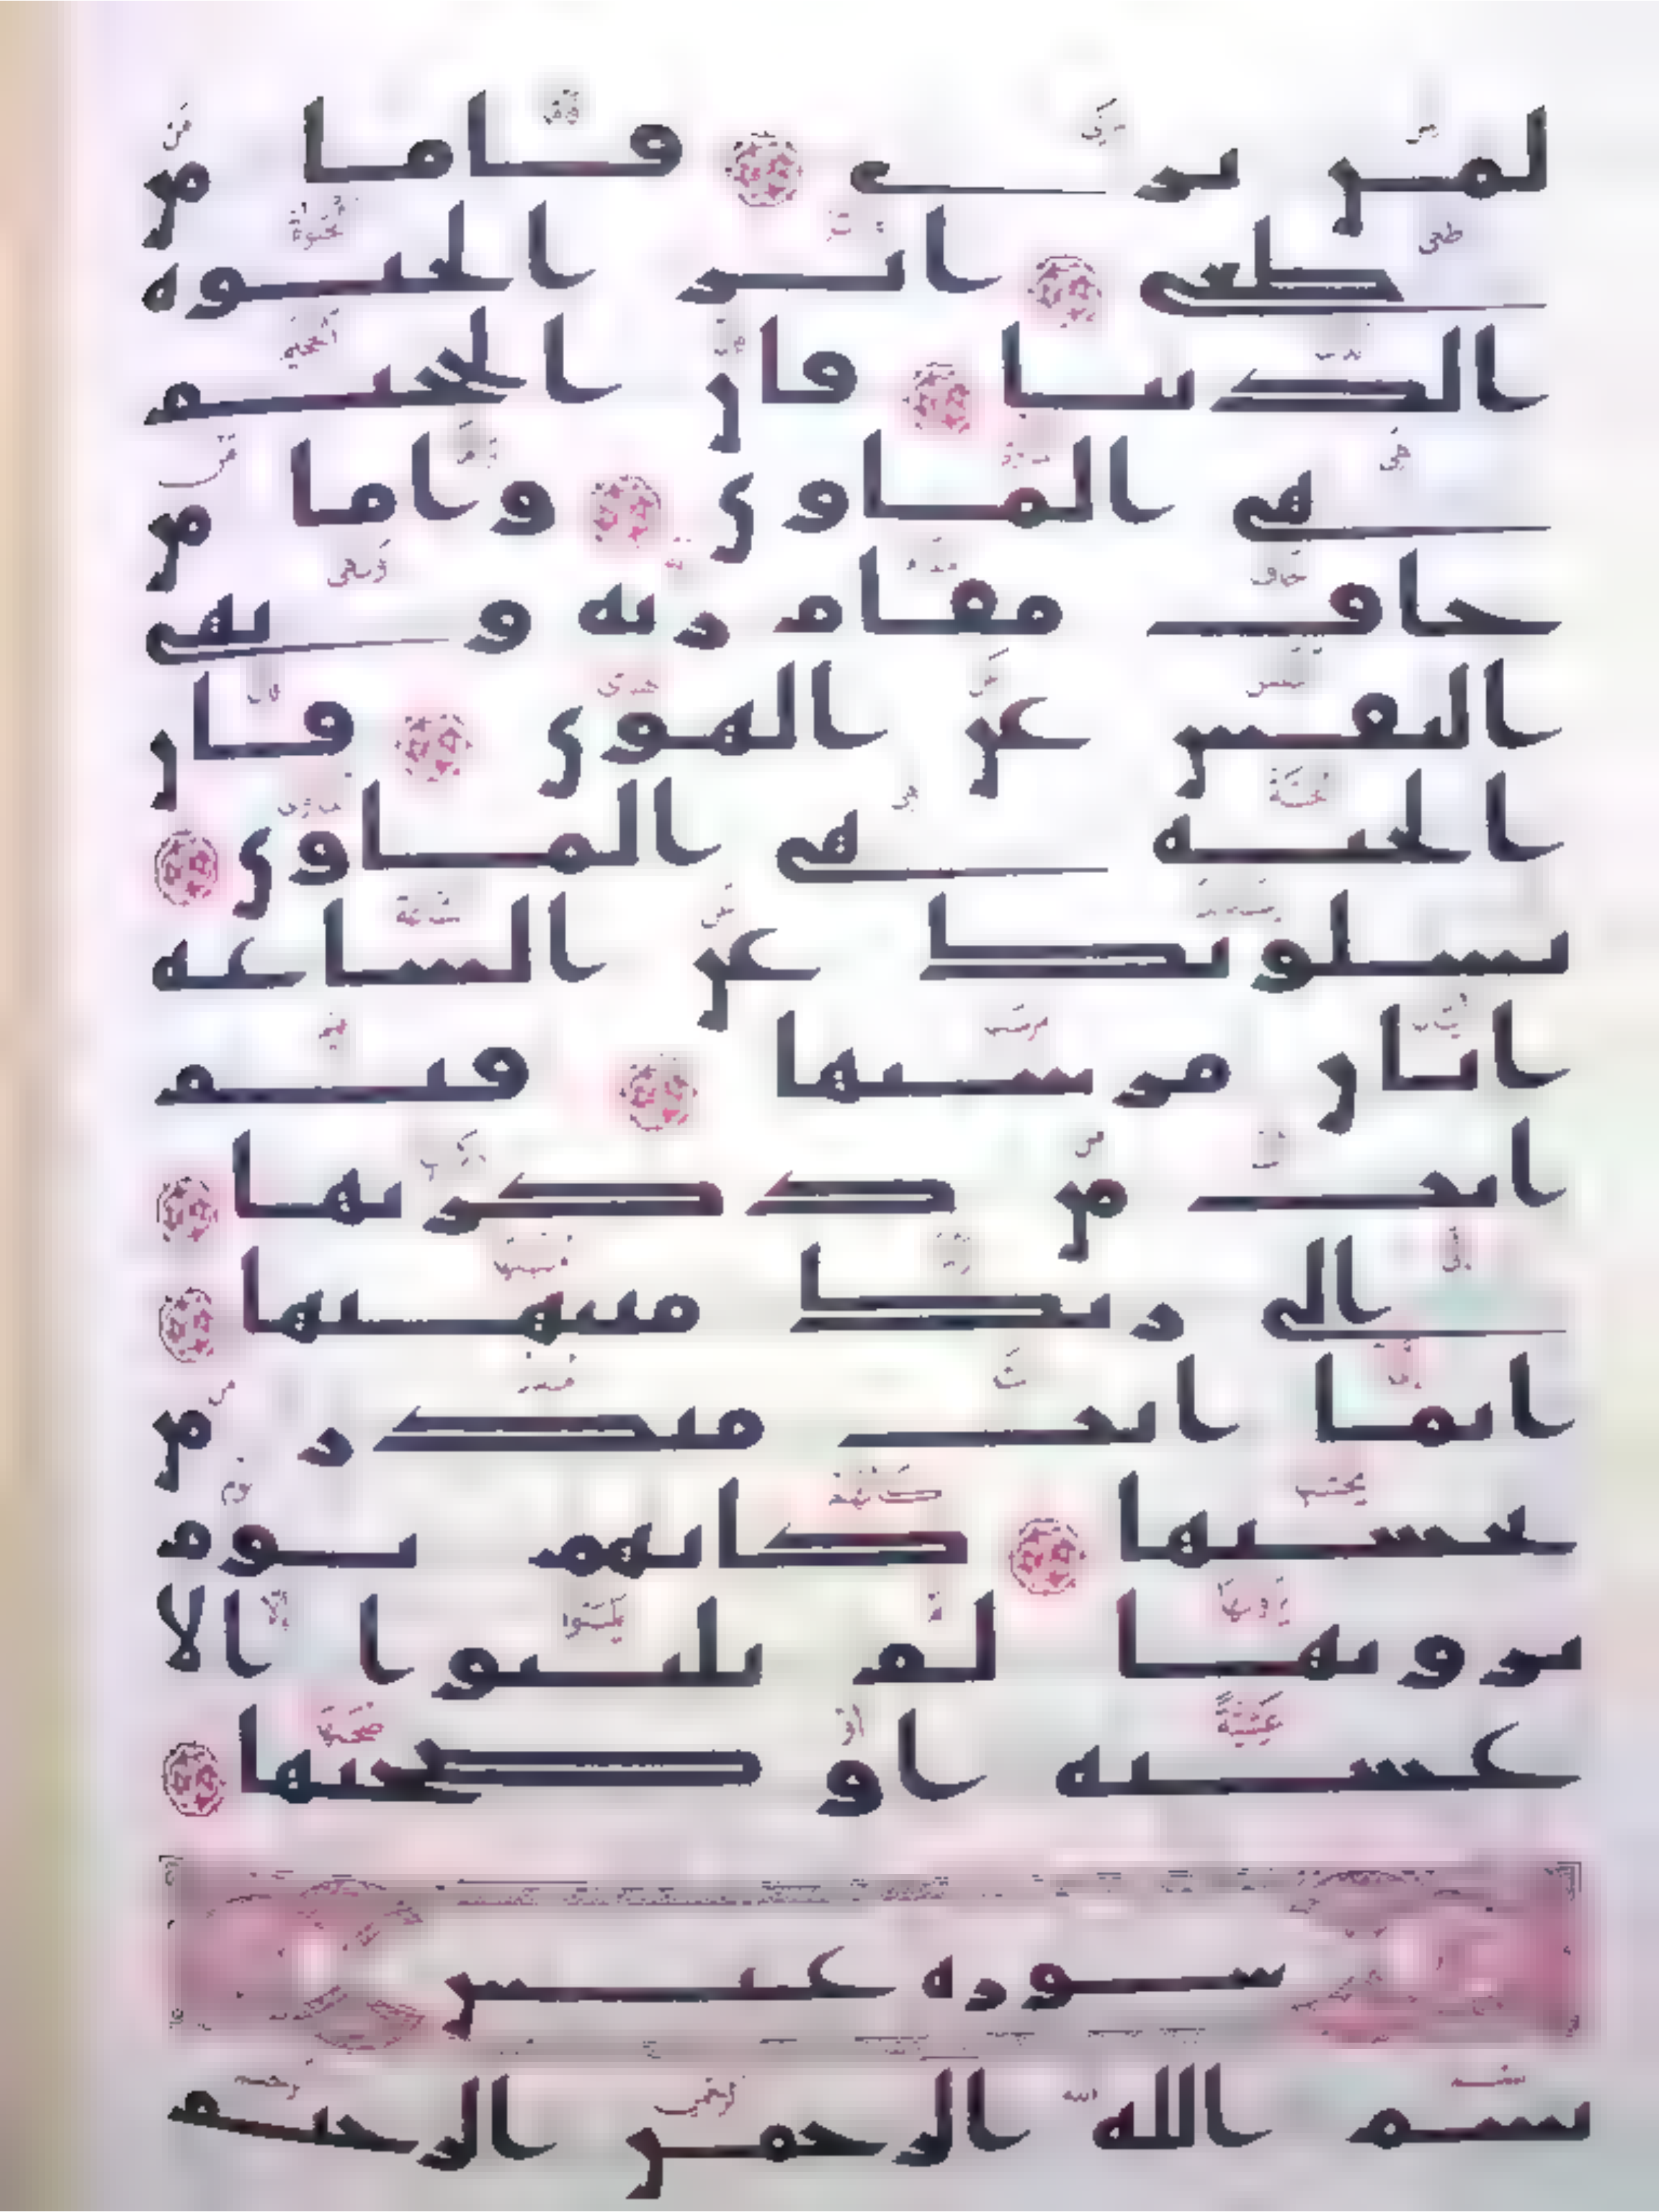 لمن يرى فاما من
طغى اثر الحيوه
الدنيا فان الجحيم
هى الماوى واما من
خاف مقام ربه و نهى
النفس عن الهوى فان
الجنه هى الماوى
يسلونك عن الساعه
ايان مرسيها فيم
انت من ذكريها
الى ربك منتهيها
انما انت منذر من
يخشيها كانهم يوم
يرونها لم يلبثوا الا
عشيه او ضحيها
سوره عبس
بسم الله الرحمن الرحيم